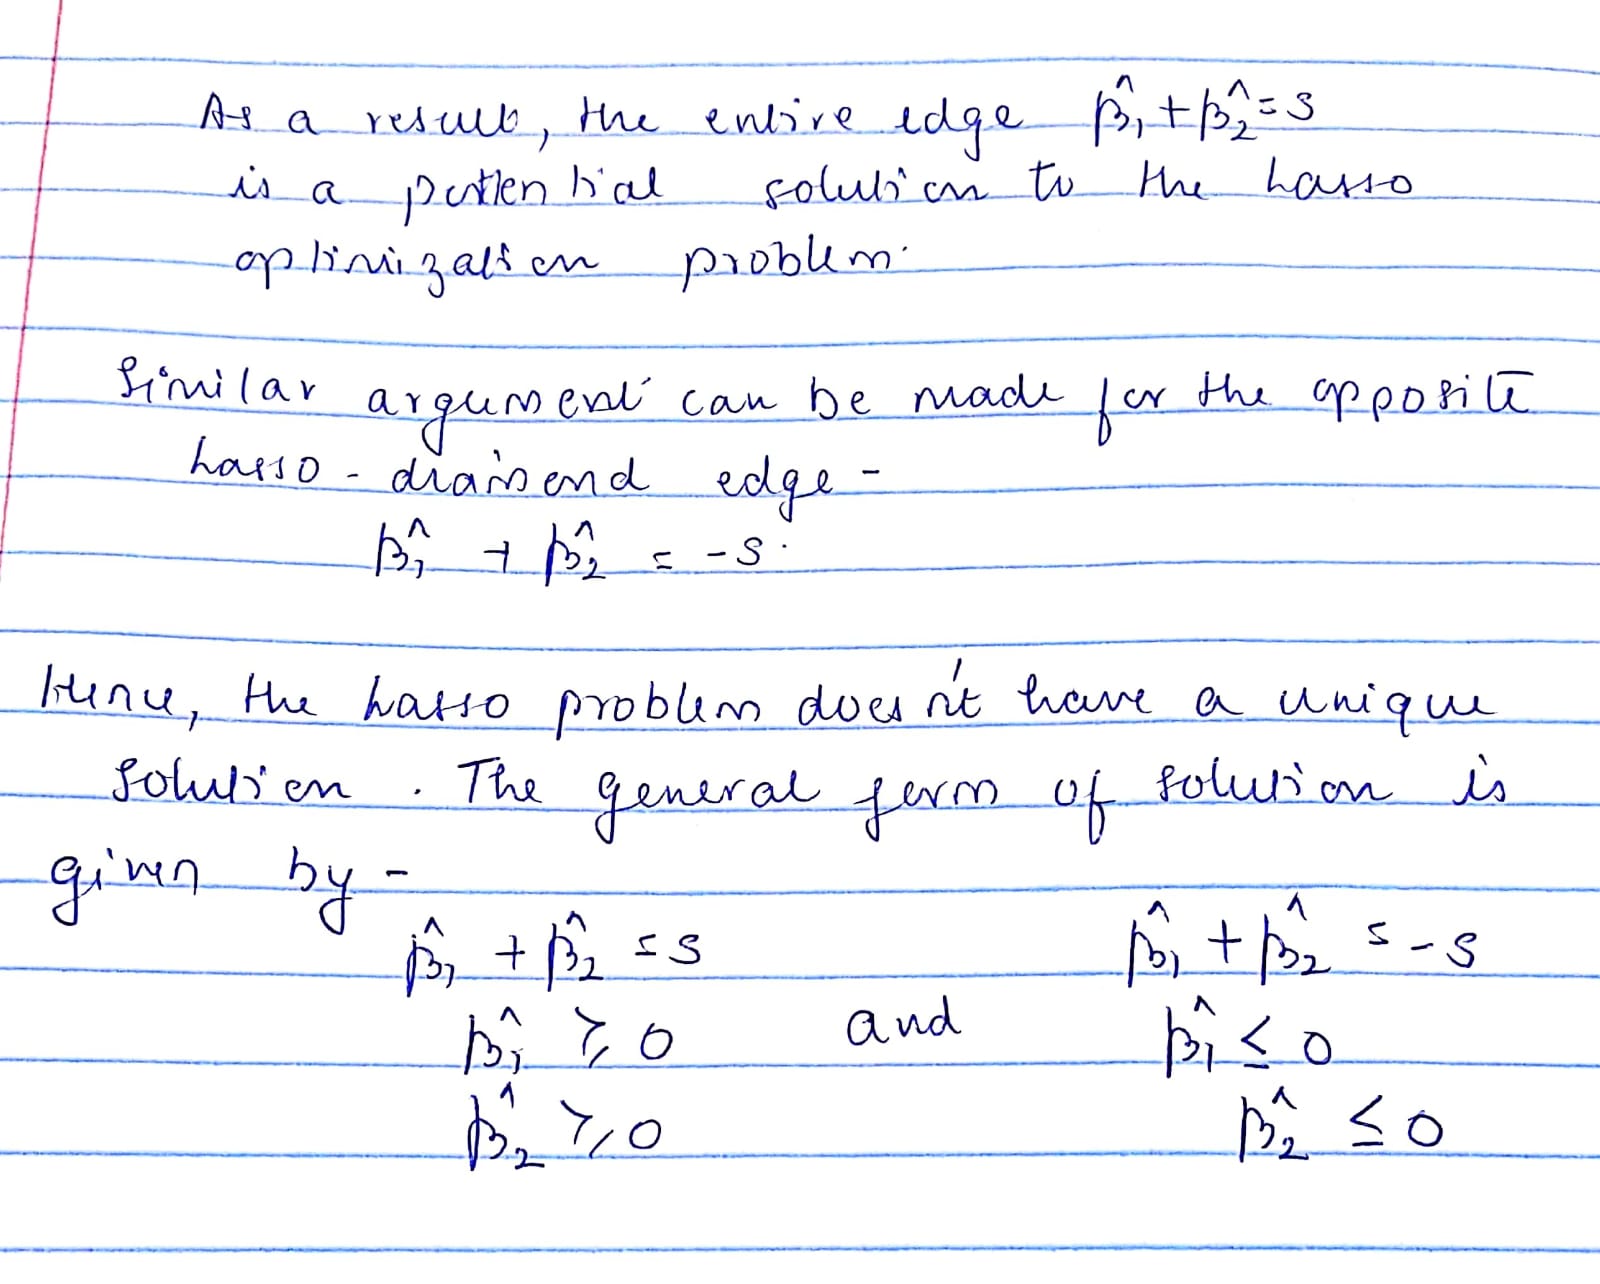 As a result, the entire edge β̂₁ + β̂₂ = s
is a potential solution to the Lasso
optimization problem.
Similar argument can be made for the opposite
Lasso - diamond edge -
β̂₁ + β̂₂ = -s.
Hence, the Lasso problem doesn't have a unique
solution. The general form of solution is
given by -
β̂₁ + β̂₂ = s β̂₁ + β̂₂ = -s
β̂₁ ≥ 0 and β̂₁ ≤ 0
β̂₂ ≥ 0 β̂₂ ≤ 0